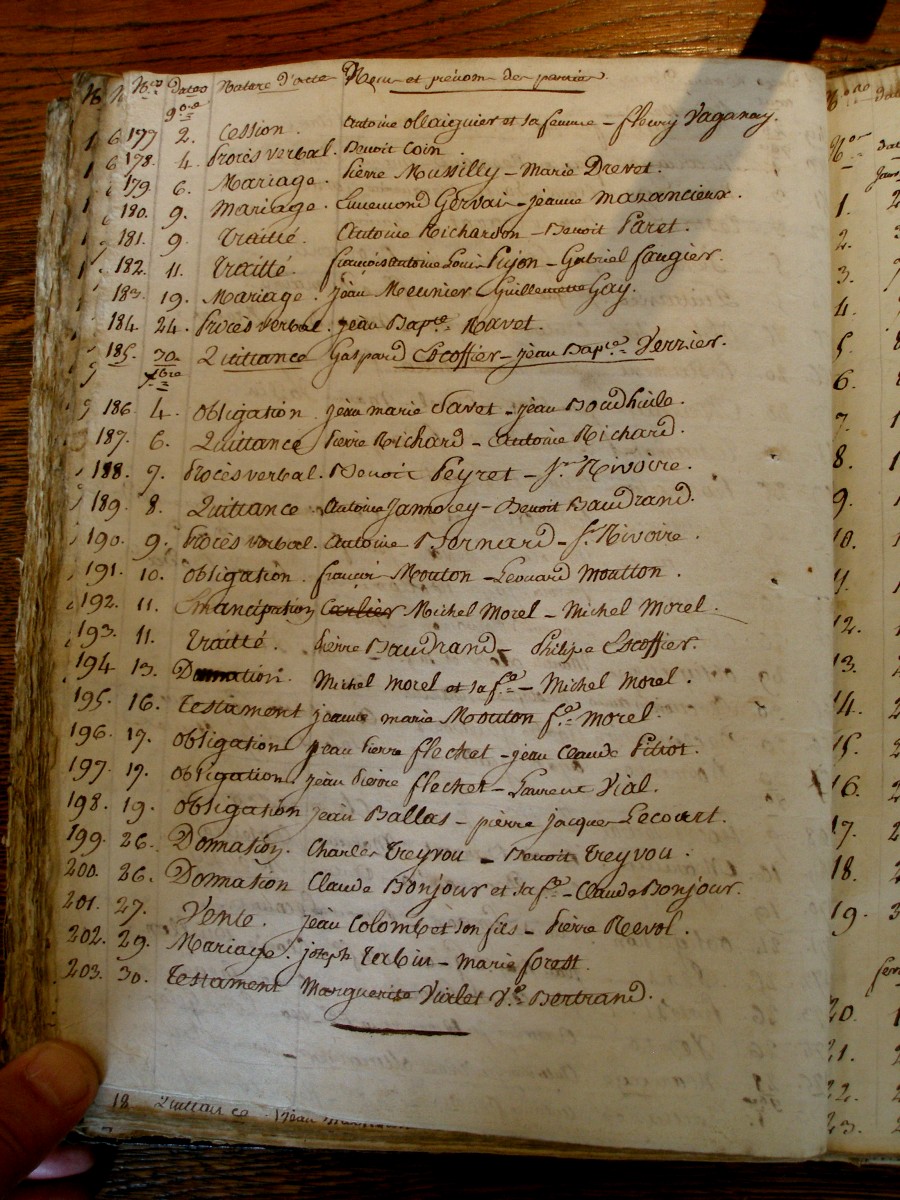 N.ros Dates Nature d'acte Nom et prénom des parties
9.bre
177 2. Cession. Antoine Ollaignier et sa femme – fleury Vaganay.
178. 4. Procès verbal. Benoit Coin.
179. 6. Mariage. Pierre Mussilly – Marie Drevet.
180. 9. Mariage. Gervais – jeanne Mazancieux.
181. 9. Traitté. Antoine Richardon – Benoit Paret.
182. 11. Traitté. françois Antoine Louis Pijon – Gabriel faugier.
183. 19. Mariage. jean Meunier Guillemette Gay.
184. 24. Procès verbal. jean Bap.te Navet.
185. 30. Quittance Gaspard Escoffier – jean Bap.te Verrier.
Xbre
186. 4. Obligation jean marie Favet – jean
187. 6. Quittance Pierre Richard – Antoine Richard.
188. 7. Procès verbal. Benoit Peyret – S.r Rivoire.
189. 8. Quittance Antoine – Benoit Baudrand.
190. 9. Procès verbal. Antoine Bernard – S.r Rivoire.
191. 10. Obligation. françois Mouton – Leonard Moutton.
192. 11. Emancipation Carlier Michel Morel – Michel Morel.
193. 11. Traitté. Pierre Baudrand – Philipe Escoffier.
194 13. Donnation. Michel Morel et sa f.e – Michel Morel.
195. 16. Testament jeanne marie Mouton f.e Morel.
196. 17. Obligation jean Pierre flechet – jean Claude Pitiot.
197. 17. Obligation. jean Pierre flechet – Laurent Vial.
198. 19. Obligation jean Ballas – pierre jacques Lecourt.
199. 26. Donnation. Charles Treyvou – Benoit Treyvou.
200. 26. Donnation Claude Bonjour et sa f.e – Claude Bonjour.
201. 27. Vente. jean Colombet et son fils – Pierre Revol.
202. 29. Mariage. joseph Terbin – marie forest.
203. 30. Testament Marguerite Violet V.e Bertrand.
18 Quittance jean
1.
2.
3.
4.
5.
6.
7.
8.
9.
10.
11.
12.
13.
14.
15.
16.
17.
18.
19.
20.
21.
22.
23.